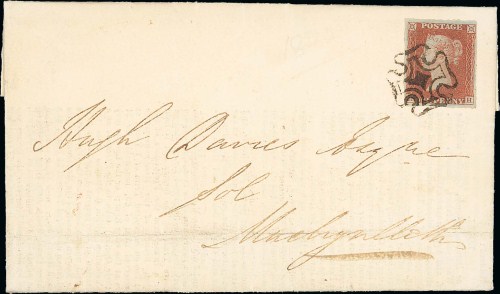 POSTAGE
Hugh Davies Esqre
Sol
Machynlleth